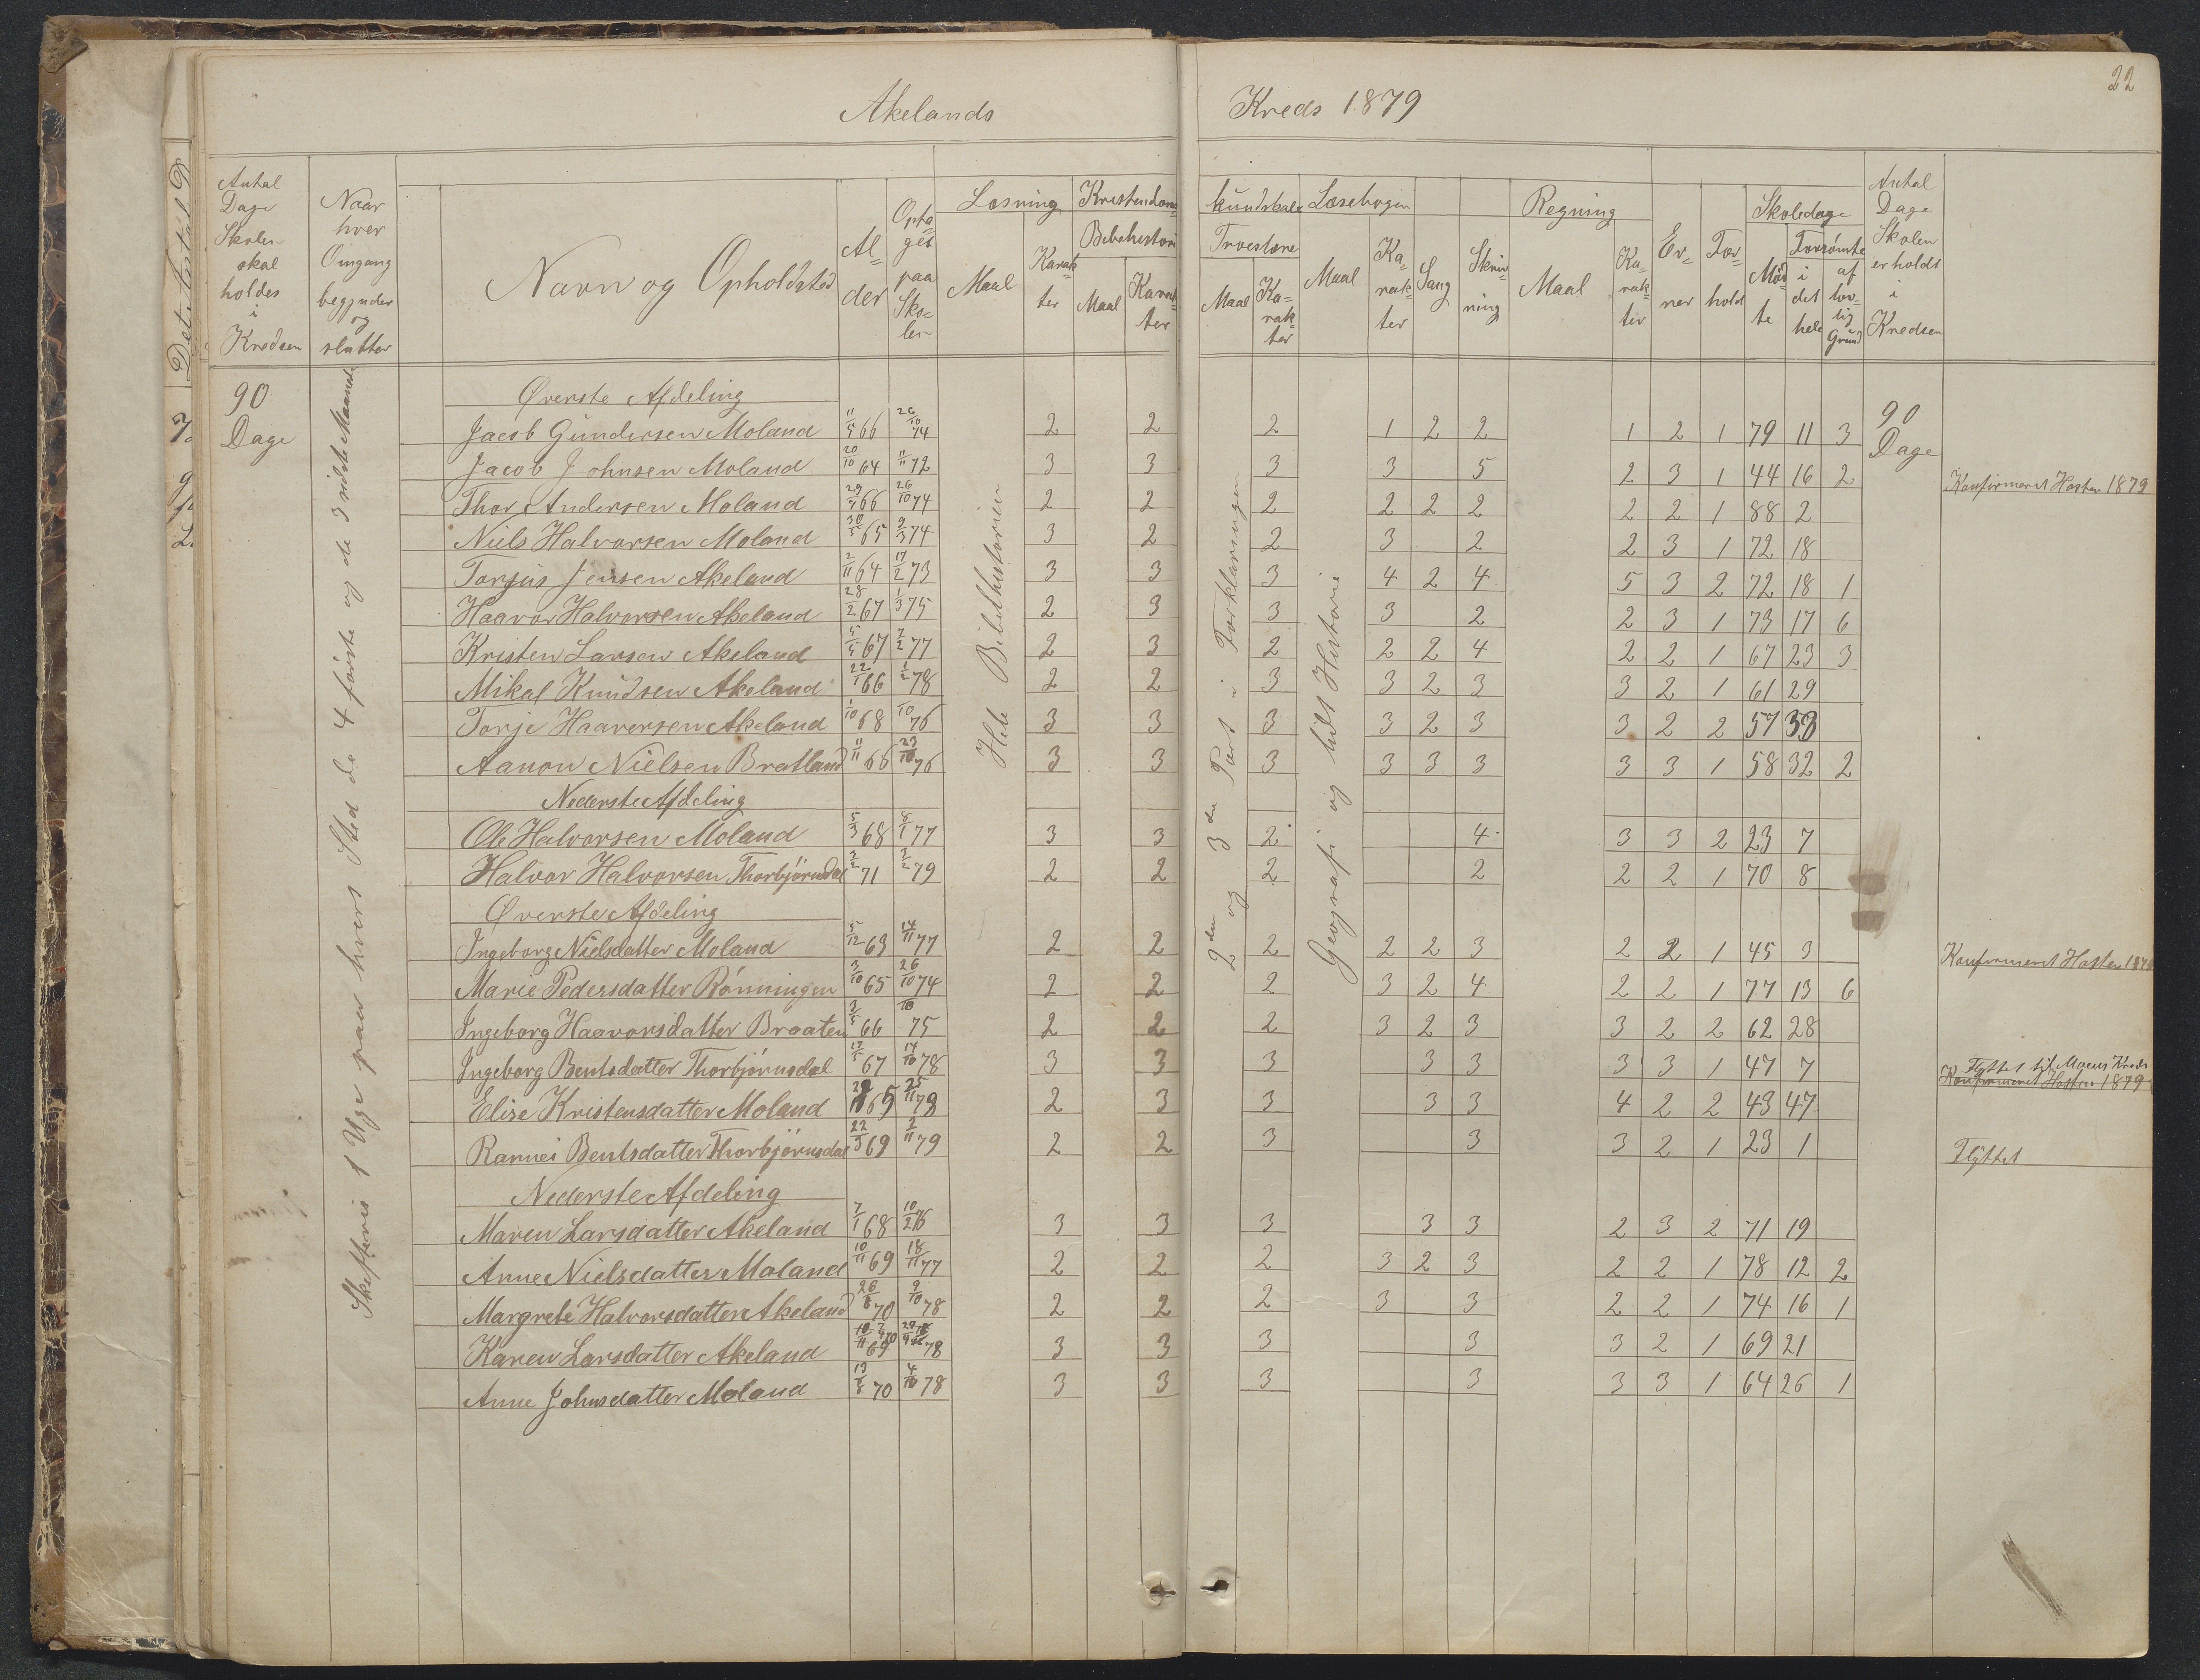 22
Akelands Kreds 1879
Antal Dage Skolen skal holdes i Kredsen
Naar hver Omgang begynder og slutter
Navn og Opholdsted
Alder
Optaget paa Skolen
Læsning
Maal
Karakter
Kristendomskundskab
Bibelhistorie
Maal
Karakter
Troeslære
Maal
Karakter
Læsebogen
Maal
Karakter
Sang
Skrivning
Regning
Maal
Karakter
Evner
Forhold
Skoledage
Mødte
Forsømte
i det hele
af lovlig Grund
Antal Dage Skolen er holdt i Kredsen
90 Dage
Skiftevis 1 Uge paa hvert Sted de 4 første og de 3 sidste Maaneder
Hele Bibelhistorien
2den og 3die Part i Forklaringen
Geografi og lidt Historie
90 Dage
Øverste Afdeling
Jacob Gundersen Moland 11/5 66 26/10 74 2 2 2 1 2 2 1 2 1 79 11 3
Jacob Johnsen Moland 20/10 64 11/11 72 3 3 3 3 5 2 3 1 44 16 2 Konfirmeret Høsten 1879
Thor Andersen Moland 29/5 66 26/10 74 2 2 2 2 2 2 2 2 1 88 2
Niels Halvorsen Moland 30/5 65 9/3 74 3 2 2 3 2 2 3 1 72 18
Torjus Jensen Akeland 2/11 64 17/2 73 3 3 3 4 2 4 5 3 2 72 18 1
Haavor Halvorsen Akeland 28/2 67 1/3 75 2 3 3 3 2 2 3 1 73 17 6
Kristen Larsen Akeland 5/5 67 7/2 77 2 3 2 2 2 4 2 2 1 67 23 3
Mikal Knudsen Akeland 22/1 66 1/2 78 2 2 3 3 2 3 3 2 1 61 29
Torje Haaversen Akeland 1/10 68 10 76 3 3 3 3 2 3 3 2 2 57 33
Aanon Nielsen Bratland 11/11 66 23/10 76 3 3 3 3 3 3 3 3 1 58 32 2
Nederste Afdeling
Ole Halvorsen Moland 5/3 68 8/1 77 3 3 2 4 3 3 2 23 7
Halvor Halvorsen Thorbjørnsdal 3/2 71 3/2 79 2 2 2 2 2 2 1 70 8
Øverste Afdeling
Ingeborg Nielsdatter Moland 5/12 63 14/11 77 2 2 2 2 2 3 2 2 1 45 3 Konfirmeret Høsten 1879
Marie Pedersdatter Rønningen 3/10 65 26/10 74 2 2 2 3 2 4 2 2 1 77 13 6
Ingeborg Haavorsdatter Braaten 3/5 66 10 75 2 2 2 3 2 3 3 2 2 62 28
Ingeborg Bentsdatter Thorbjørnsdal 17/5 67 14/10 78 3 3 3 3 3 3 3 1 47 7 Flyttet til Moens Kreds
Elise Kristensdatter Moland 65 25/11 79 2 3 3 3 3 4 2 2 43 47 Konfirmeret Høsten 1879
Rannei Bentsdatter Thorbjørnsdal 22/5 69 2/11 79 2 2 3 3 3 2 1 23 1 Flyttet
Nederste Afdeling
Maren Larsdatter Akeland 7/1 68 10/2 76 3 3 3 3 3 2 3 2 71 19
Anne Nielsdatter Moland 10/11 69 18/11 77 2 2 2 3 2 3 2 2 1 78 12 2
Margrete Halvorsdatter Akeland 26/8 70 9/10 78 2 2 2 3 3 2 2 1 74 16 1
Karen Larsdatter Akeland 69 78 3 3 3 3 3 2 1 69 21
Anne Johnsdatter Moland 13/8 70 4/10 78 3 3 3 3 3 3 1 64 26 1